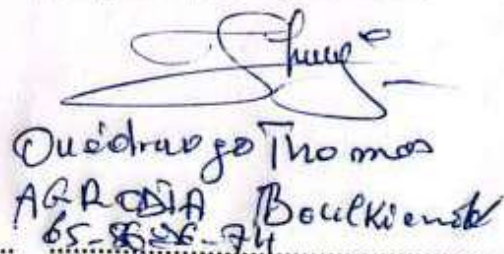 Ouédraogo Thomas
AGRODIA Boulkiemdé
65-56-26-74